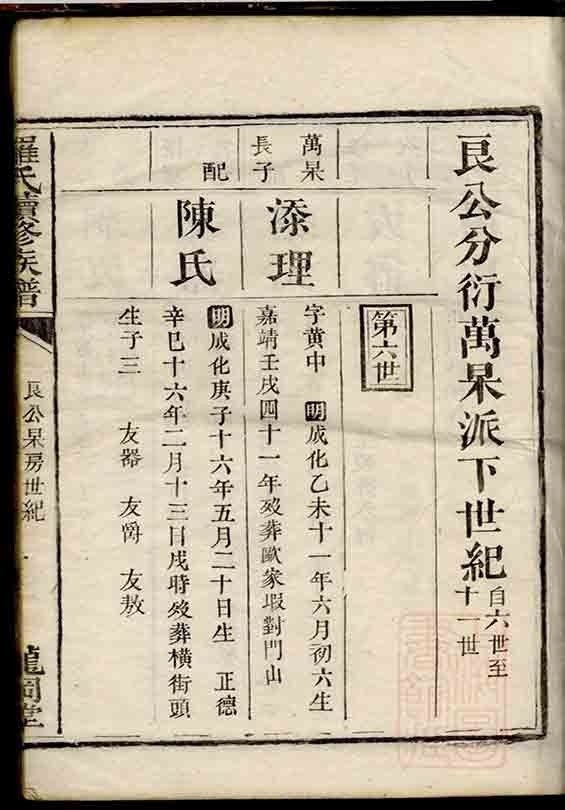 良公分衍萬杲派下世紀
自六世至
十一世
第六世
萬杲
長子
添理
字黄中 明成化乙未十一年六月初六生
嘉靖壬戌四十一年殁葬歐家塅對門山
配
陳氏
明成化庚子十六年五月二十日生 正德
辛巳十六年二月十三日戌時殁葬橫街頭
生子三 友器 友爵 友敖
羅氏續修族譜
良公杲房世紀
一